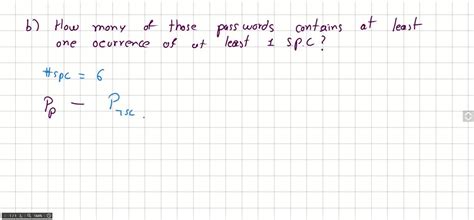 b) How many of those passwords contains at least
one ocurrence of at least 1 s.p.c?
#spc = 6
Pp - P¬sc.